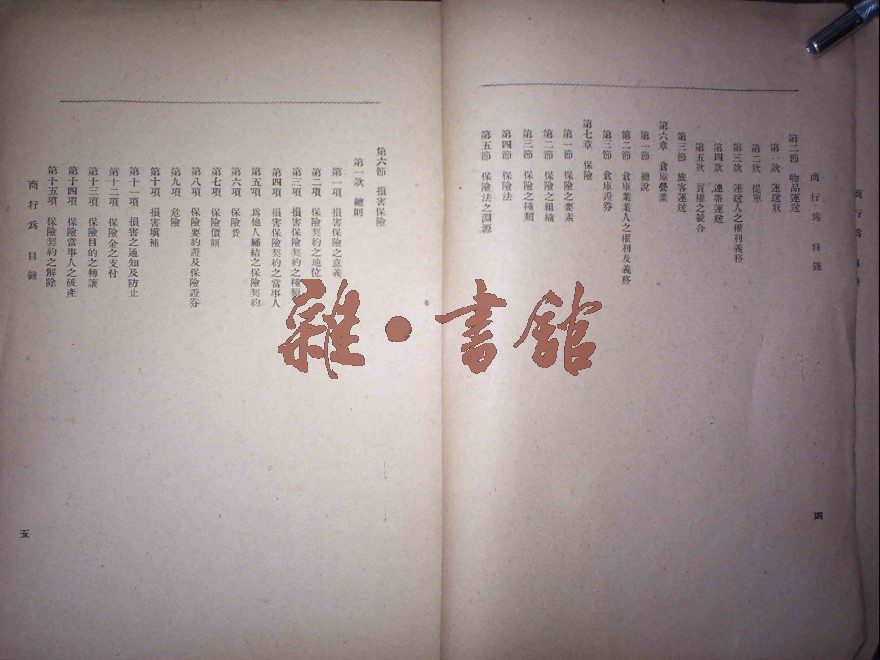 商行爲 目錄
第二節 物品運送
第一款 運送狀
第二款 提單
第三款 運送人之權利義務
第四款 連帶運送
第五款 質權之競合
第三節 旅客運送
第六章 倉庫營業
第一節 總說
第二節 倉庫業業人之權利及義務
第三節 倉庫證券
第七章 保險
第一節 保險之要素
第二節 保險之組織
第三節 保險之種類
第四節 保險法
第五節 保險法之淵源
四
第六節 損害保險
第一款 總則
第一項 損害保險之意義
第二項 保險契約之地位
第三項 損害保險契約之種類
第四項 損害保險契約之當事人
第五項 爲他人締結之保險契約
第六項 保險費
第七項 保險價額
第八項 保險要約證及保險證券
第九項 危險
第十項 損害塡補
第十一項 損害之通知及防止
第十二項 保險金之支付
第十三項 保險目的之轉讓
第十四項 保險當事人之破產
第十五項 保險契約之解除
商行爲 目錄
五
雜·書館